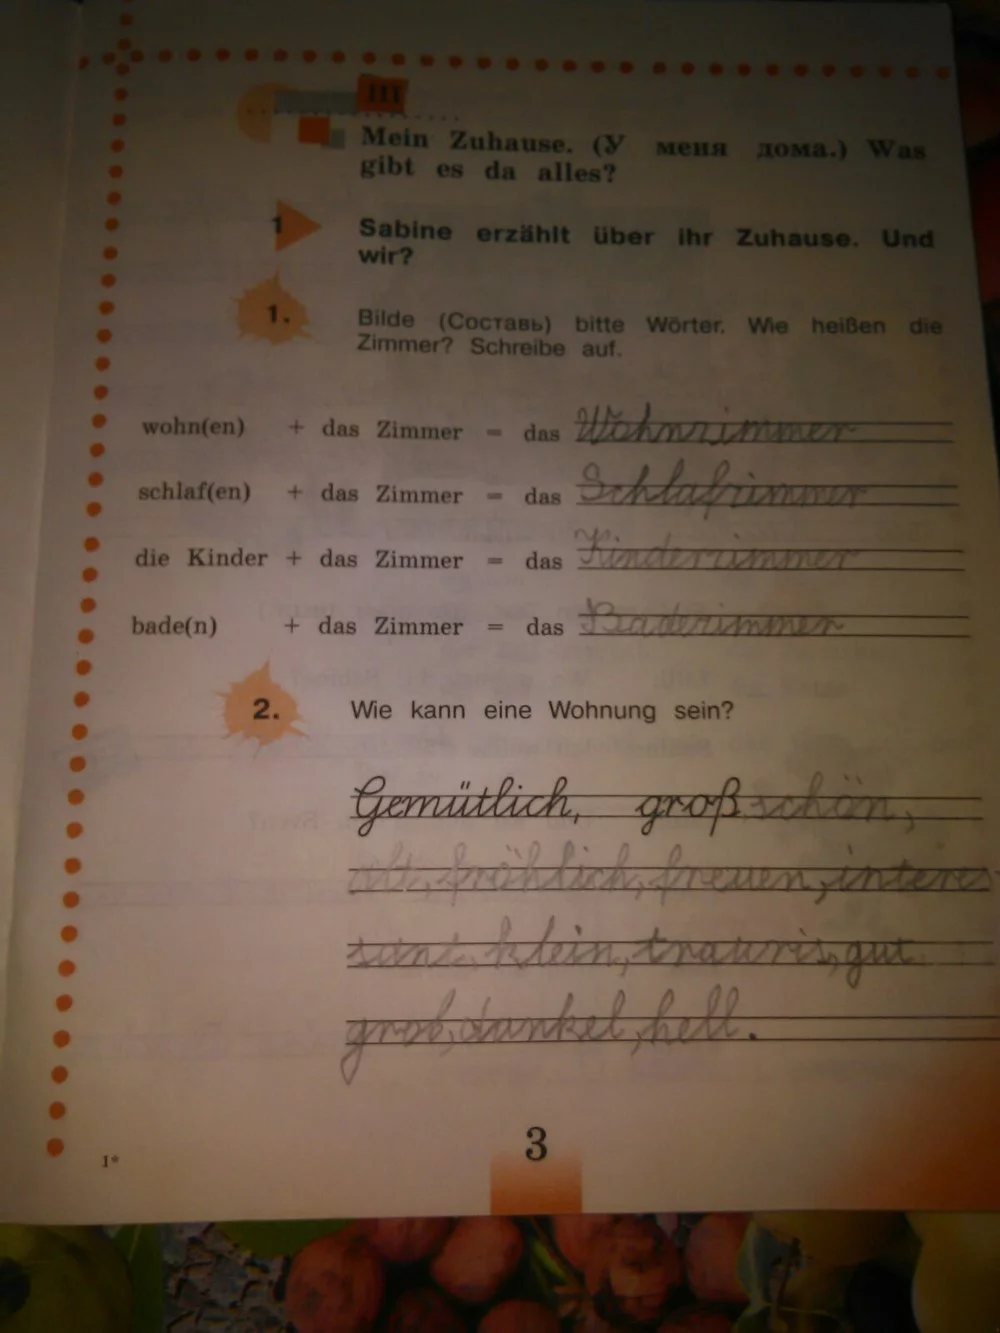 III
Mein Zuhause. (У меня дома.) Was
gibt es da alles?
1 Sabine erzählt über ihr Zuhause. Und
wir?
1. Bilde (Составь) bitte Wörter. Wie heißen die
Zimmer? Schreibe auf.
wohn(en) + das Zimmer = das Wohnzimmer
schlaf(en) + das Zimmer = das Schlafzimmer
die Kinder + das Zimmer = das Kinderzimmer
bade(n) + das Zimmer = das Badezimmer
2. Wie kann eine Wohnung sein?
Gemütlich, groß schön,
alt, fröhlich, freuen, interes
sant, klein, traurig, gut
grob, dunkel, hell.
3
1*